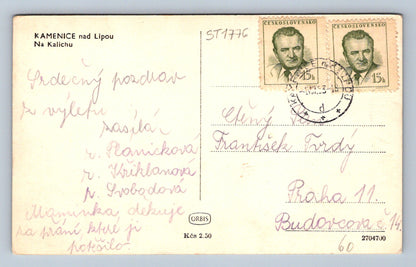 KAMENICE nad Lipou
Na Kalichu
ST1776
ČESKOSLOVENSKO
15h
ČESKOSLOVENSKO
15h
Srdečný pozdrav
z výletu
zasílá
r. Planičková
r. Křiklanová
r. Svobodová
Maminka děkuje
za přání které ji
potěšilo.
Ctěný
František Tvrdý
Praha 11.
Budovcova č. 14.
60
ORBIS
Kčs 2.50
2704700